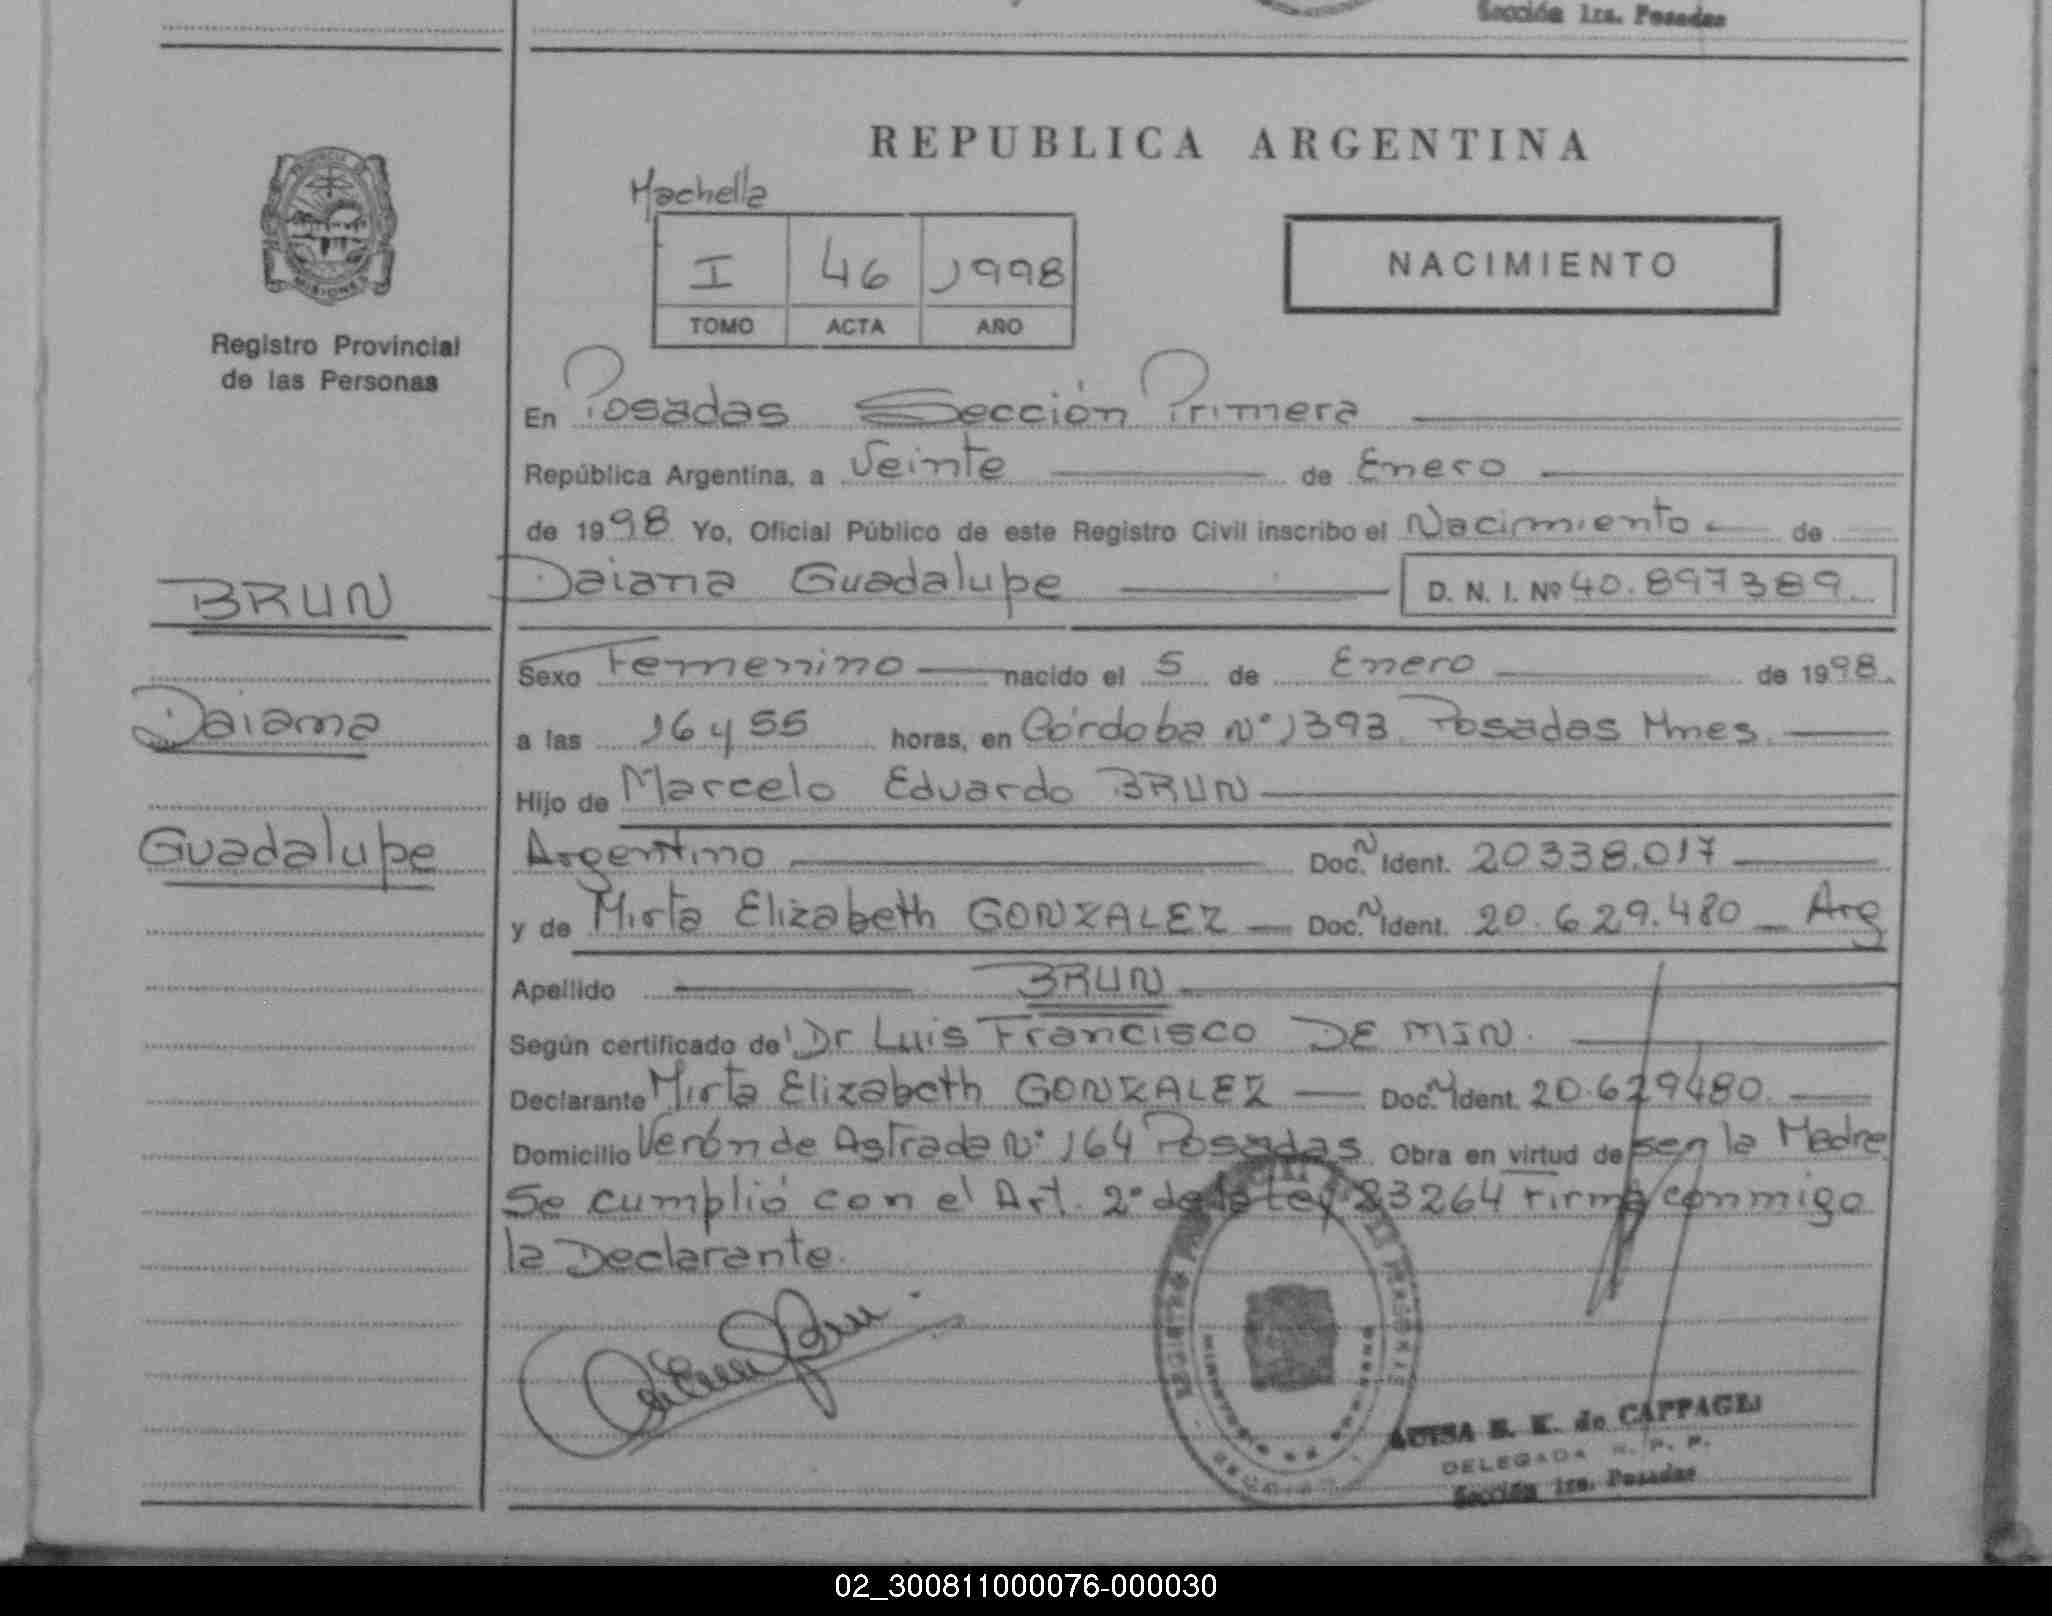 Sección 1ra. Posadas
REPUBLICA ARGENTINA
Machella
I 46 1998
TOMO ACTA AÑO
NACIMIENTO
MISIONES
Registro Provincial
de las Personas
En Posadas Sección Primera
República Argentina, a Veinte de Enero
de 1998 Yo, Oficial Público de este Registro Civil inscribo el Nacimiento de
Daiana Guadalupe D. N. I. Nº 40.897389
BRUN
Daiana
Guadalupe
Sexo Femenino nacido el 5 de Enero de 1998.
a las 16 y 55 horas, en Córdoba Nº 1393 Posadas Mnes.
Hijo de Marcelo Eduardo BRUN
Argentino Doc. N Ident. 20338.017
y de Mirta Elizabeth GONZALEZ Doc. N Ident. 20.629.480 Arg
Apellido BRUN
Según certificado de Dr Luis Francisco DE MIN.
Declarante Mirta Elizabeth GONZALEZ Doc. N Ident. 20.629480.
Domicilio Verón de Astrada Nº 164 Posadas. Obra en virtud de ser la Madre
Se cumplió con el Art. 2º de la Ley 23264 firma conmigo
la Declarante.
LUISA B. K. de CAPPAGLI
DELEGADA R. P. P.
Sección 1ra. Posadas
02_300811000076-000030